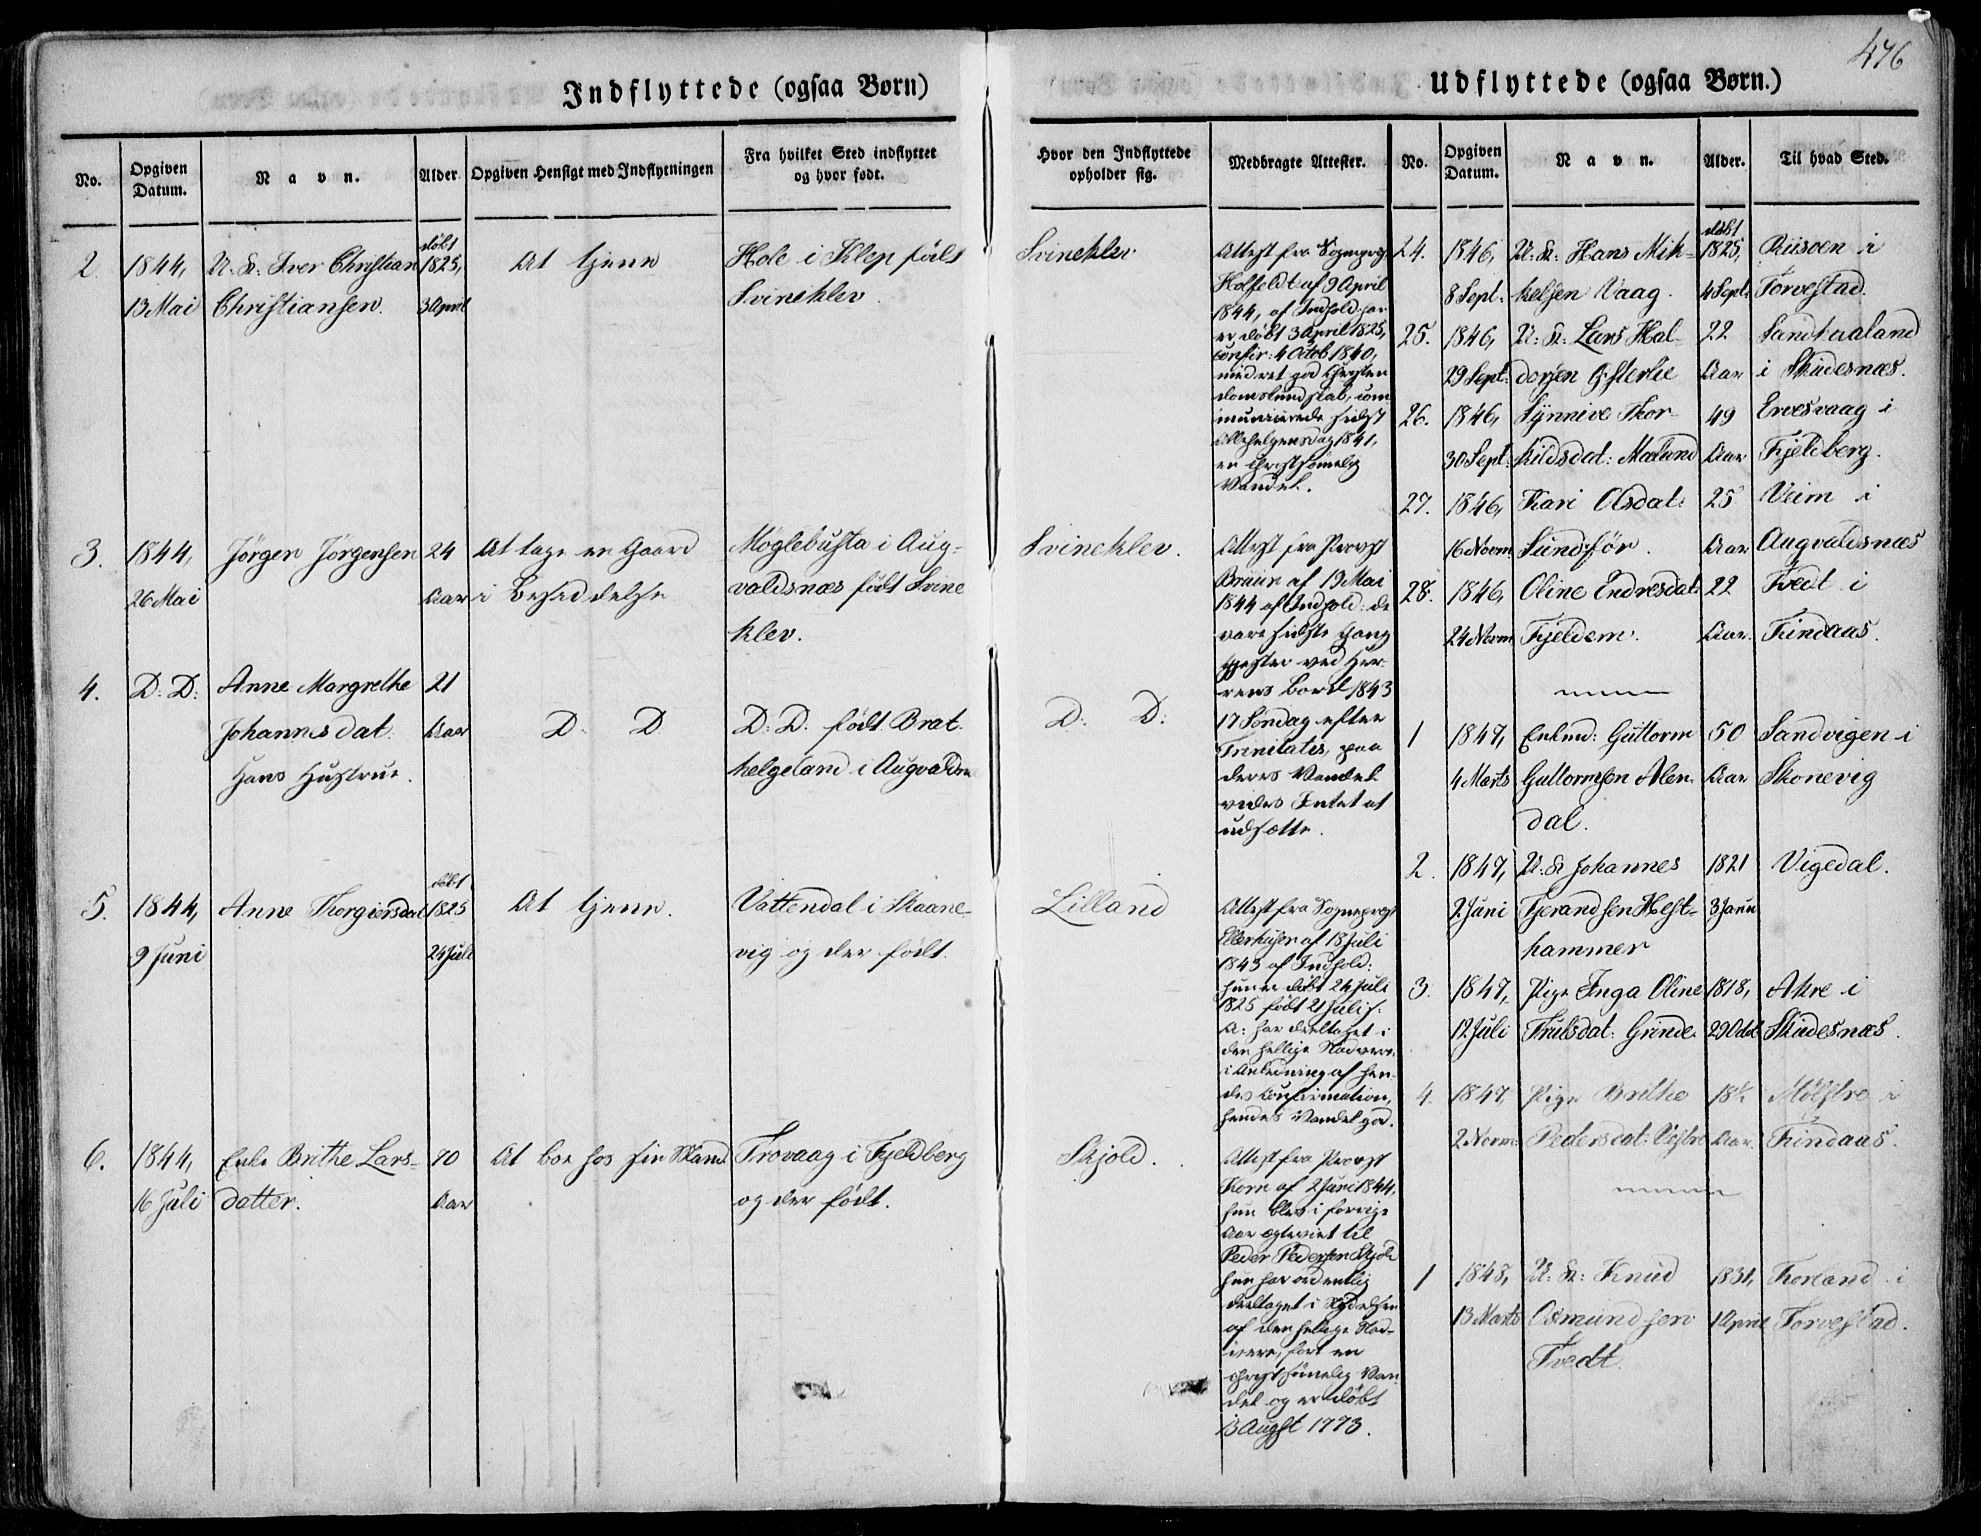 476
Indflyttede (ogsaa Børn)
No.
Opgiven
Datum.
Navn.
Alder
Opgiven Hensigt med Indflytningen
Fra hvilket Sted indflyttet
og hvor født.
Hvor den Indflyttede
opholder sig.
Medbragte Attester.
2.
1844,
13 Mai
U. K. Iver Christian
Christiansen.
døbt
1825,
3 April
At tjene
Hole i Klep født
Svineklev.
Svineklev
Attest fra Sognepræst
Holfeldt af 9 April
1844, af Indhold: han
er døbt 3 April 1825,
confir: 4 Octob 1840,
med ret god Christen
domskundskab, com
municerede sidst
Allehelgensdag 1841,
en christsømelig
Vandel.
3.
1844,
26 Mai
Jørgen Jørgensen
24
Aar
At tage en Gaard
i Besiddelse
Møglebusta i Aug-
valdsnæs født Svine
klev.
Svineklev.
Attest fra Provst
Bruun af 19 Mai
1844 af Indhold: de
vare sidste Gang
Gjester ved Her-
rens Bord 1843
17 Søndag efter
Trinitatis, paa
deres Vandel
vides Intet at
udsætte.
4.
D: D:
Anne Margrethe
Johannesdat:
Hans Hustrue.
21
Aar
D: D
D: D. født Brat-
helgeland i Augvaldsn
D: D:
5.
1844,
9 Juni
Anne Thorgiersdat
døbt
1825
24 Juli
At tjene.
Vattendal i Skaane-
vig og der født.
Lilland
Attest fra Sognepræst
Ellerhusen af 18 Juli
1843 af Indhold:
hun er døbt 24 Juli
1825 født 21 Juli s:
A: har deeltaget i
den hellige Nadvere
i Anledning af hen-
des Confirmation,
hendes Vandel god.
6.
1844,
16 Juli
Enke Brithe Lars-
datter.
70
Aar
At boe hos sin Mand
Trovaag i Fjeldberg
og der født.
Skjold.
Attest fra Provst
Horn af 2 Juni 1844,
hun blev i forrige
Aar ægteviet til
Peder Pedersen Skjold
hun har ordentlig
deeltaget i Nydelsen
af den hellige Nad-
vere, ført en
christsømelig Van-
del og er døbt
13 Augst 1773.
Udflyttede (ogsaa Børn.)
No.
Opgiven
Datum.
Navn.
Alder.
Til hvad Sted.
24.
1846,
8 Sept:
U: K: Hans Mik-
kelsen Vaag.
døbt
1825,
4 Sept:
Riisøen i
Torvestad.
25.
1846,
29 Sept:
U: K: Lars Hal-
dorsen Østerlie
22
Aar
Sandvaland
i Skudesnæs.
26.
1846,
30 Sept:
Synnive Thor-
kildsdat: Mæland
49
Aar
Ervesvaag i
Fjeldberg.
27.
1846,
16 Novm
Kari Olsdat:
Sundfør.
25
Aar
Veim i
Augvaldsnæs
28.
1846,
24 Novm
Oline Endresdat:
Fjeldem.
22
Aar.
Tvedt i
Tindaas.
1
1847,
4 Marts
Enkem: Guttorm
Guttormsen Alen
dal.
50
Aar
Sandvigen i
Skonevig
2.
1847,
2 Juni
U: K Johannes
Tjerandsen Hest-
hammer
1821
3 Januar
Vigedal.
3.
1847,
12 Juli
Pige Inga Oline
Trulsdat: Grinde.
1818,
29 Octob
Akre i
Skudesnæs.
4.
1847,
2 Novm:
Pige Brithe
Pedersdat: Vestre
18½
Aar.
Mølstre i
Tindaas.
1
1848,
13 Marts
U: K: Knud
Osmundsen
Tvedt.
1831,
1 April
Torland i
Torvestad.